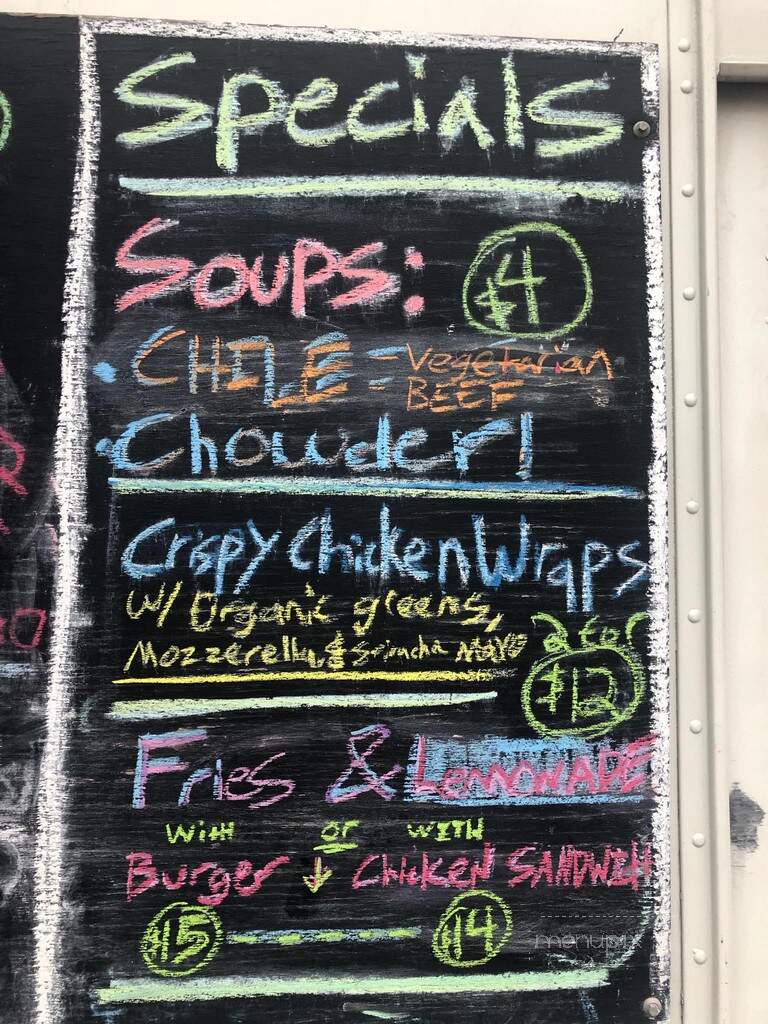 Specials
Soups: $4
• CHILE = Vegetarian
BEEF
• Chowder!
Crispy Chicken Wraps
w/ Organic greens,
Mozzerella, & Sriracha Mayo
2 for
$12
Fries & LEMONADE
WITH or WITH
Burger ↓ Chicken SANDWICH
$15 $14
menupix